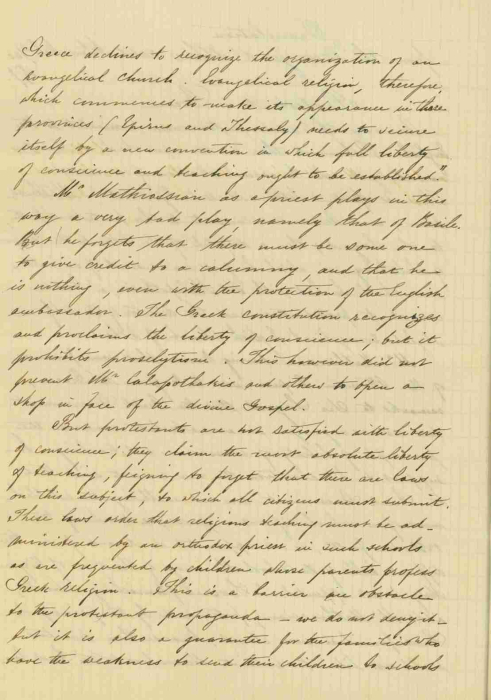 Greece declines to recognize the organization of an
evangelical church. Evangelical religion, therefore,
which commences to make its appearance in these
provinces (Epirus and Thessaly) needs to secure
itself by a new convention in which full liberty
of conscience and teaching ought to be established."
Mr Mathiossian as a priest plays in this
way a very bad play, namely that of Basile.
But he forgets that there must be some one
to give credit to a calumny, and that he
is nothing, even with the protection of the English
ambassador. The Greek constitution recognizes
and proclaims the liberty of conscience; but it
prohibits proselytism. This however did not
prevent Mr Calapothakis and others to open a
shop in face of the divine Gospel.
But protestants are not satisfied with liberty
of conscience; they claim the most absolute liberty
of teaching, feigning to forget that there are laws
on this subject, to which all citizens must submit.
These laws order that religious teaching must be ad-
ministered by an orthodox priest in such schools
as are frequented by children whose parents profess
Greek religion. This is a barrier an obstacle
to the protestant propaganda - we do not deny it -
but it is also a guarantee for the families who
have the weakness to send their children to schools